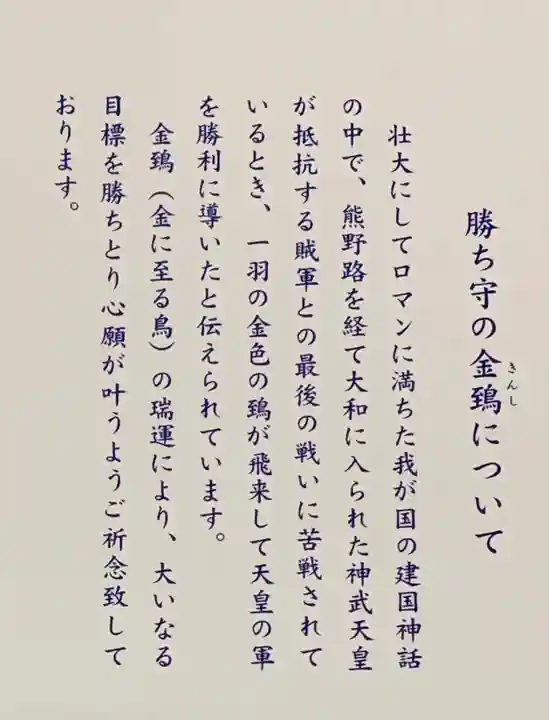 勝ち守の金鵄について
きんし
壮大にしてロマンに満ちた我が国の建国神話
の中で、熊野路を経て大和に入られた神武天皇
が抵抗する賊軍との最後の戦いに苦戦されて
いるとき、一羽の金色の鵄が飛来して天皇の軍
を勝利に導いたと伝えられています。
金鵄（金に至る鳥）の瑞運により、大いなる
目標を勝ちとり心願が叶うようご祈念致して
おります。